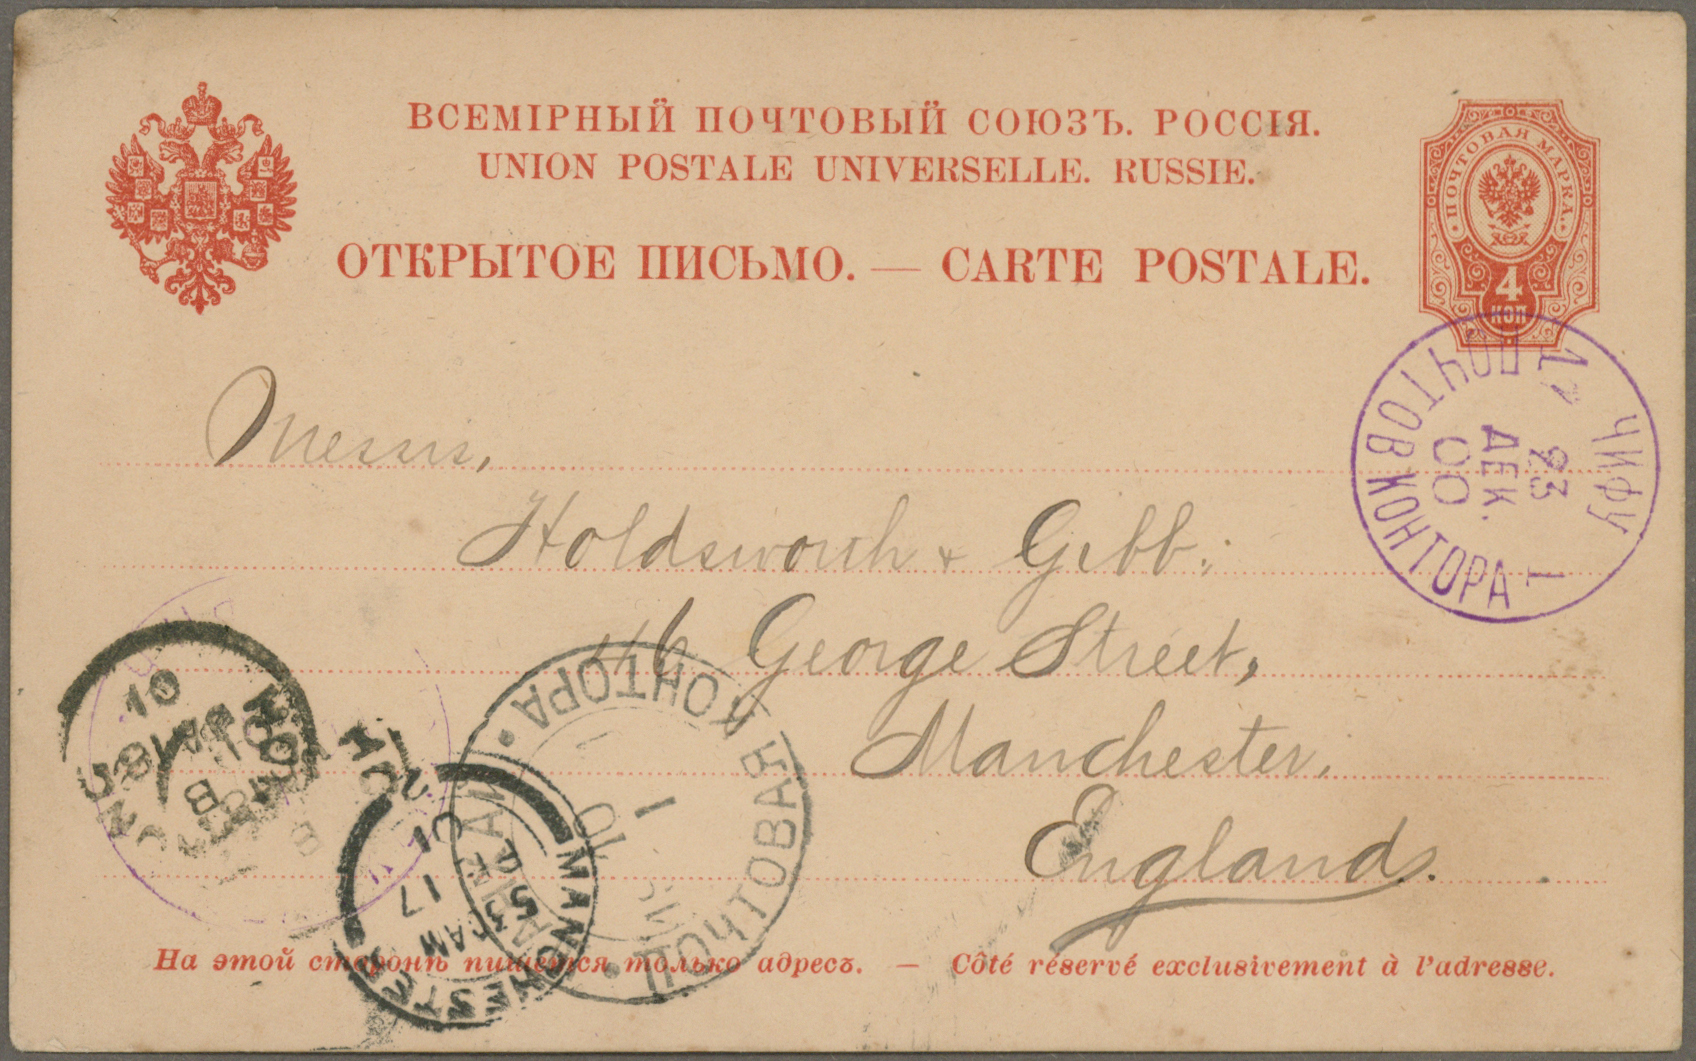 ВСЕМІРНЫЙ ПОЧТОВЫЙ СОЮЗЪ. РОССІЯ.
UNION POSTALE UNIVERSELLE. RUSSIE.
ОТКРЫТОЕ ПИСЬМО. — CARTE POSTALE.
ПОЧТОВАЯ МАРКА
4
КОП
ЧИФУ
23
ДЕК.
00
ПОЧТОВ КОНТОРА
Messrs,
Holdsworth & Gibb.
George Street,
Manchester,
England.
01
ПОЧТОВАЯ КОНТОРА
MANCHESTER
17
01
На этой сторонѣ пишется только адресъ. — Côté réservé exclusivement à l'adresse.